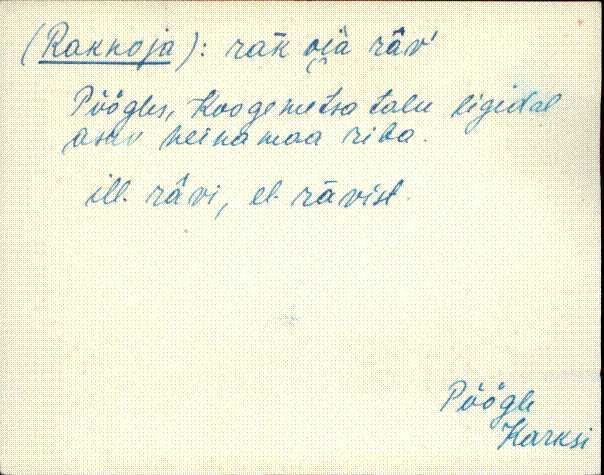 (Raknoja): räk oja räv'
Pöögles, Koogemetsa talu ligidal
asuv heinamaa riba.
ill. rävi, el. rävist.
Pöögle
Karksi